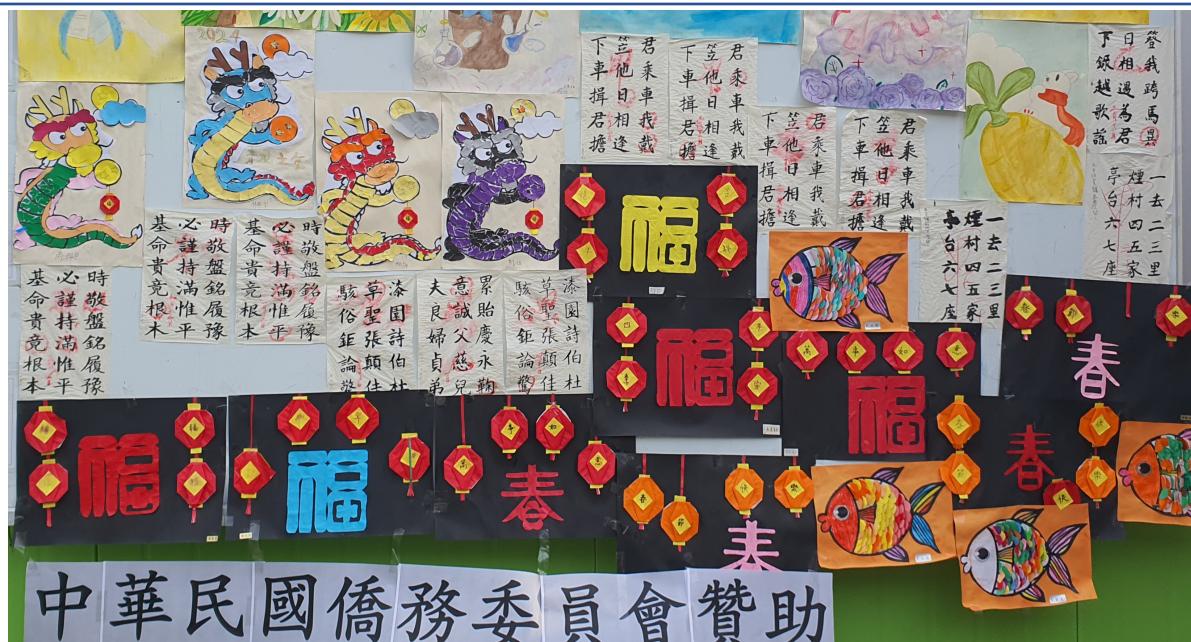 2024
君乘車我戴
笠他日相逢
下車揖君擔
君乘車我戴
笠他日相逢
下車揖君擔
君乘車我戴
笠他日相逢
下車揖君擔
君乘車我戴
笠他日相逢
下車揖君擔
我跨馬
日相過為君
下
越歌謠
一去二三里
煙村四五家
亭台六七座
一去二三里
煙村四五家
亭台六七座
時敬盤銘履豫
必謹持滿惟平
基命貴竞根本
時敬盤銘履豫
必謹持滿惟平
基命貴竞根本
時敬盤銘履豫
必謹持滿惟平
基命貴竞根本
漆園詩伯杜
草聖張顛佳
駭俗鉅論驚
累貽慶永鞠
意誠父慈兒
夫良婦貞弟
漆園詩伯杜
草聖張顛佳
駭俗鉅論驚
福
福
四季
平安
福
萬事如意
春
福
福
萬事如意
春
春節快樂
春
春節快樂
春
中華民國僑務委員會贊助